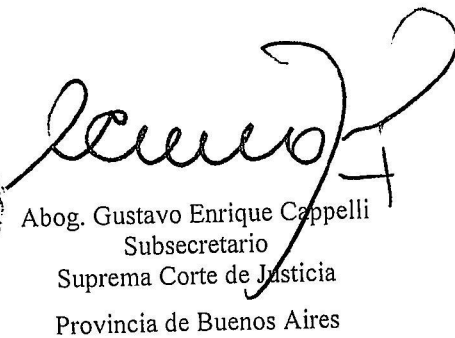 Abog. Gustavo Enrique Cappelli
Subsecretario
Suprema Corte de Justicia
Provincia de Buenos Aires